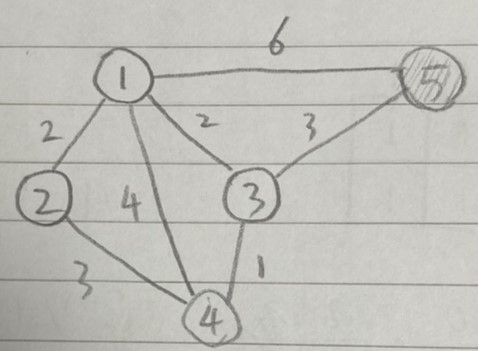 6
1
5
2
2
3
2
4
3
3
1
4